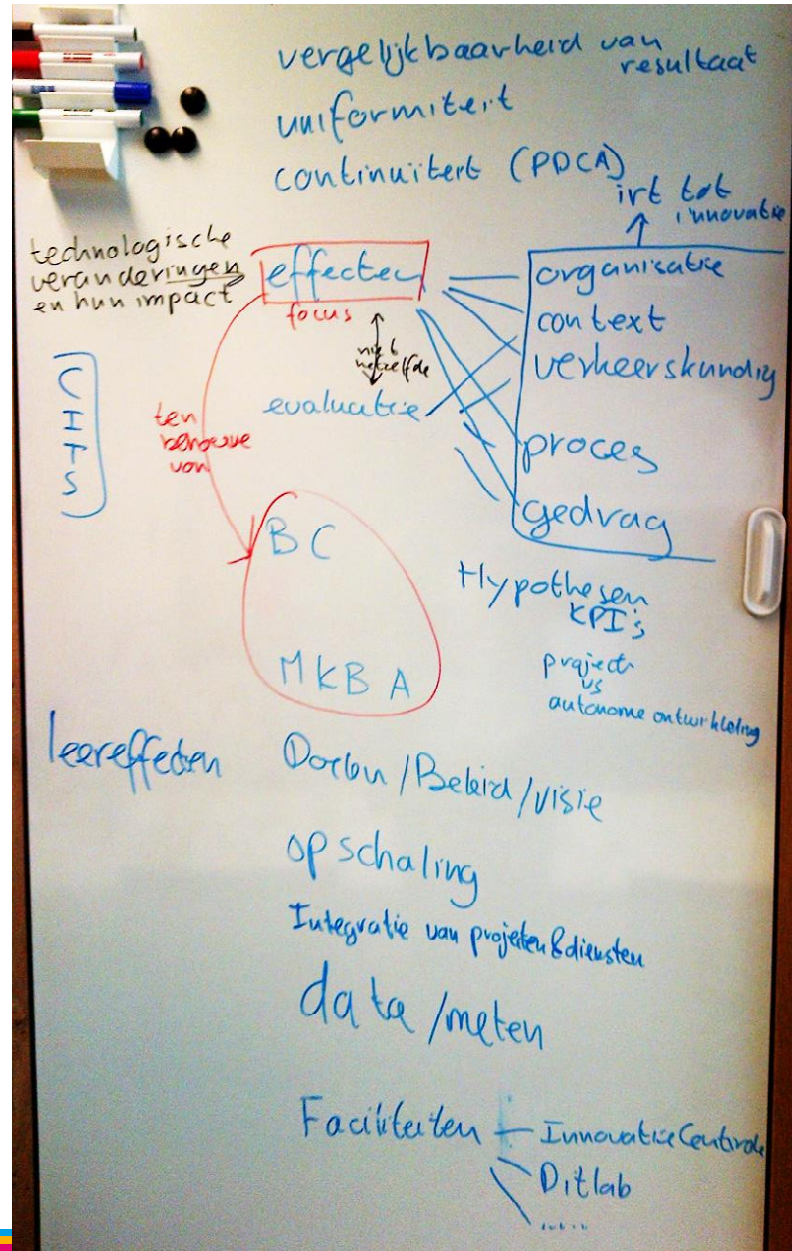 vergelijkbaarheid van
resultaat
uniformiteit
continuïteit (PDCA)
irt tot
innovatie
technologische
veranderingen
en hun impact
effecten
focus
organisatie
context
verkeerskundig
proces
gedrag
niet
hetzelfde
evaluatie
CITS
ten
behoeve
van
BC
MKBA
Hypothesen
KPI's
project
vs
autonome ontwikkeling
leereffecten
Doelen/Beleid/visie
opschaling
Integratie van projecten & diensten
data/meten
Faciliteiten
InnovatieCentrale
Ditlab
.....